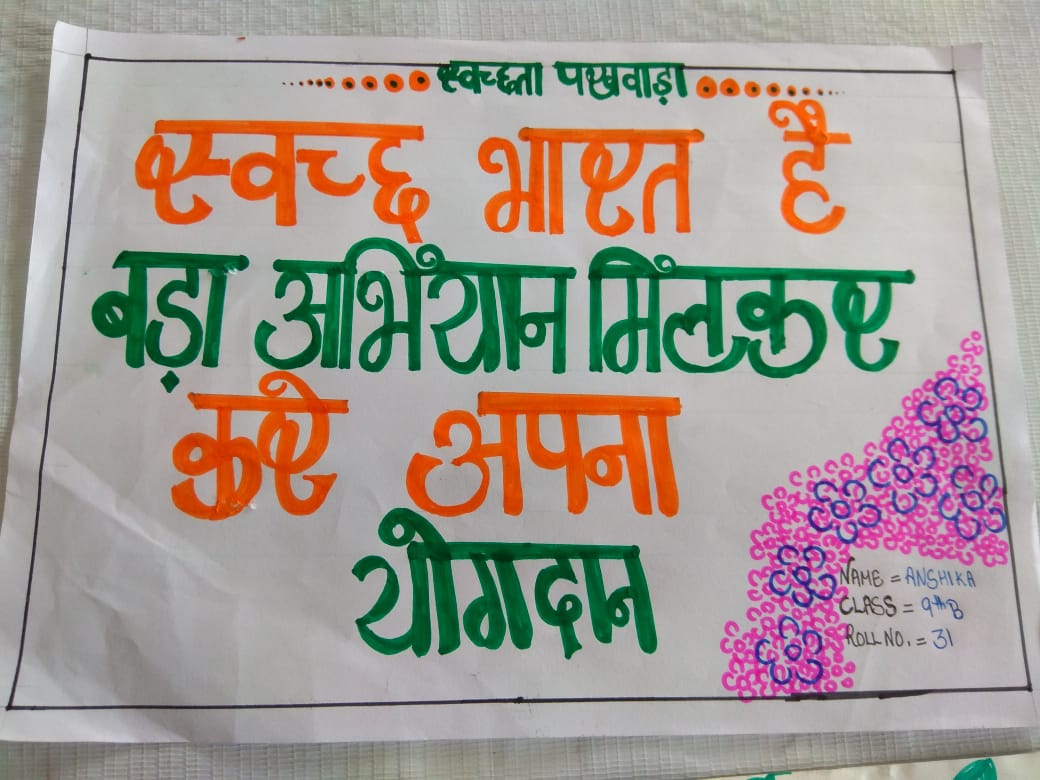 स्वच्छता पखवाड़ा
स्वच्छ भारत है
बड़ा अभियान मिलकर
करे अपना
योगदान
NAME = ANSHIKA
CLASS = 9th B
ROLL NO. = 31